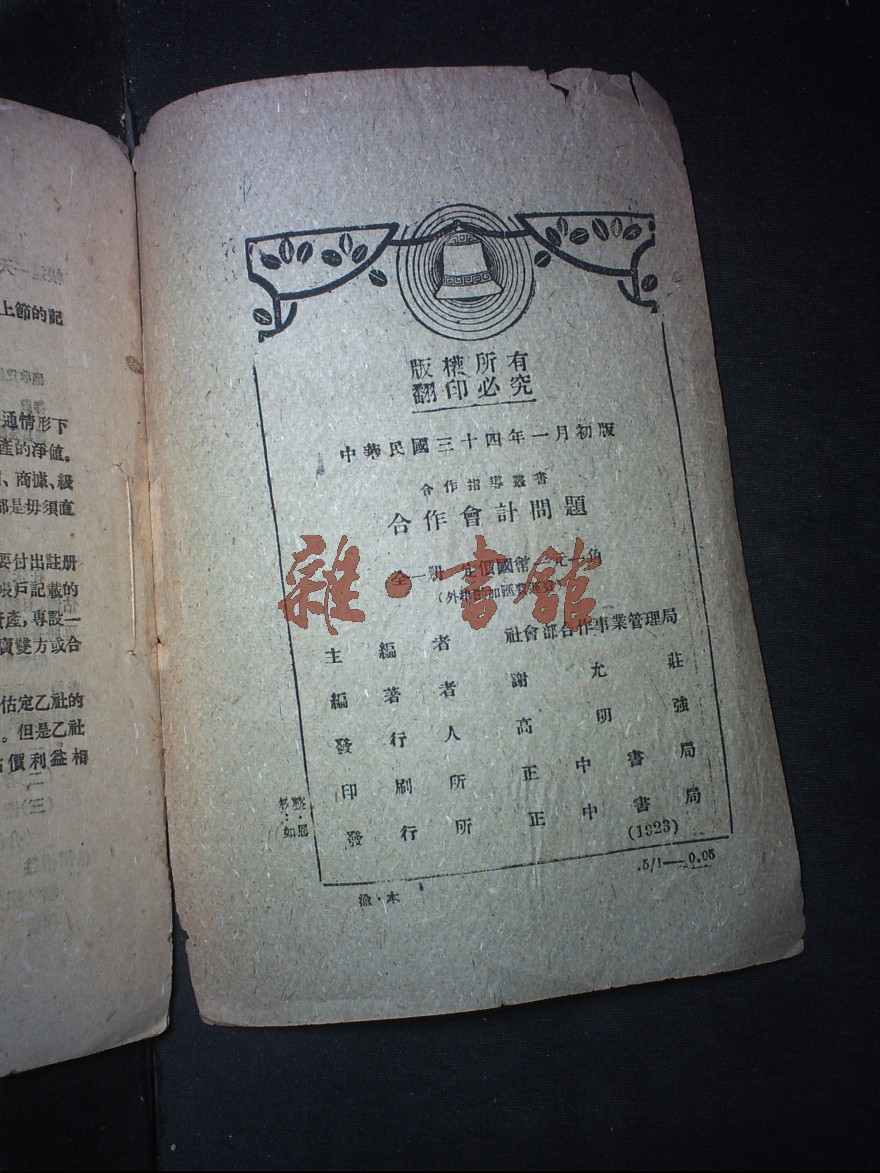 上節的記
通情形下
產的淨值。
、商據、級
都是毋須直
要付出註册
帳戶記載的
資產，專設一
賣雙方或合
估定乙社的
。但是乙社
估價利益相
版權所有
翻印必究
中華民國三十四年一月初版
合作指導叢書
合作會計問題
全一册 定價國幣 元一角
(外埠酌加匯費運費)
雜·書館
主編者 社會部合作事業管理局
編著者 謝允莊
發行人 高明強
印刷所 正中書局
發行所 正中書局
(1923)
渝·本
.5/1—0.05